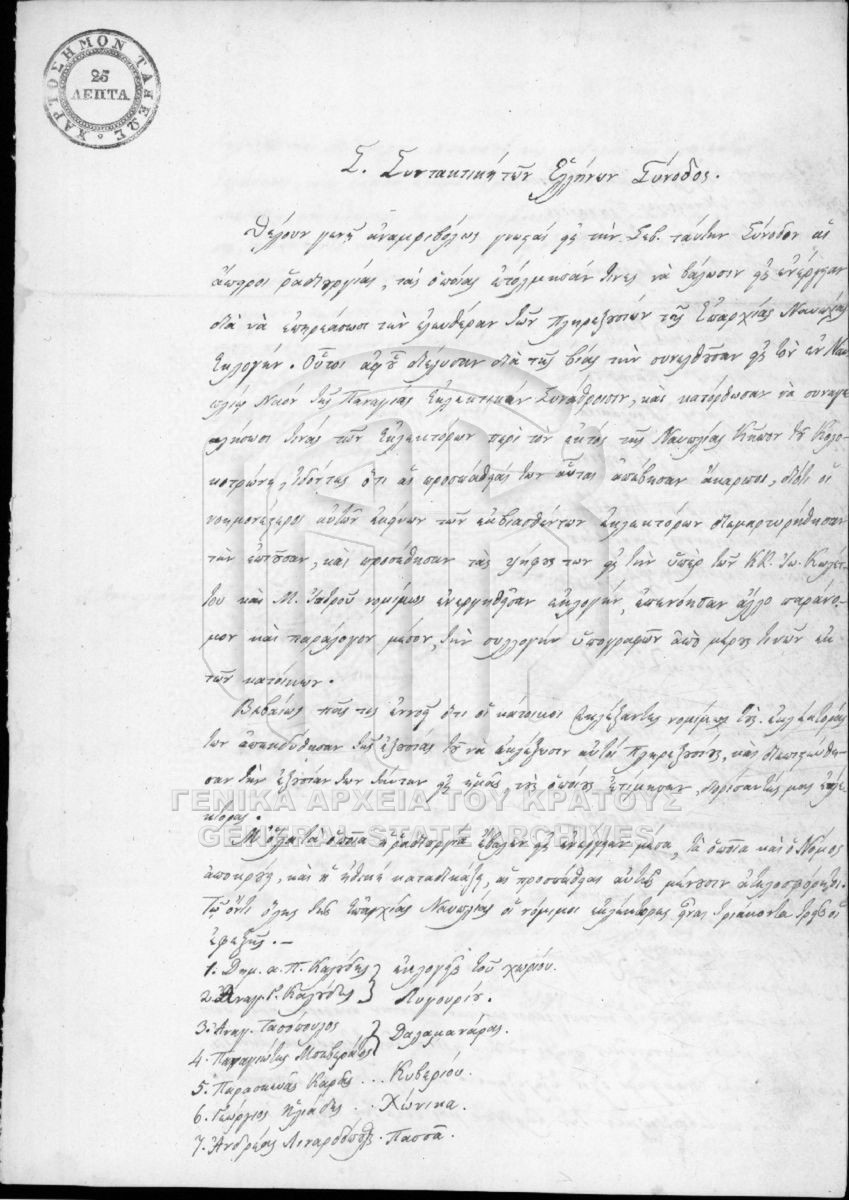 ΧΑΡΤΟΣΗΜΟΝ ΤΑΞΕΩΣ
25
ΛΕΠΤΑ
Σ. Συντακτική τῶν Ἑλλήνων Σύνοδος.
Θέλουν γενῆ ἀναμφιβόλως γνωσταὶ εἰς τὴν Σεβ. ταύτην Σύνοδον αἱ
ἄπειροι ῥαδιουργίαι, τὰς ὁποίας ἐτόλμησάν τινες νὰ βάλωσιν εἰς ἐνέργειαν
διὰ νὰ ἐπηρεάσωσι τὴν ἐλευθέραν τῶν πληρεξουσίων τῆς Ἐπαρχίας Ναυπλίας
ἐκλογήν. Οὗτοι ἀφοῦ διέλυσαν διὰ τῆς βίας τὴν συνελθοῦσαν εἰς τὸν ἐν Ναυ
πλίῳ Ναὸν τῆς Παναγίας ἐκλεκτικὴν Συνάθροισιν, καὶ κατόρθωσαν νὰ συναγε
λήσωσι τινὰς τῶν ἐκλεκτόρων περὶ τὸν ἐκτὸς τῆς Ναυπλίας Κῆπον τοῦ Κολο-
κοτρώνη, ἰδόντες ὅτι αἱ προσπάθειαί των αὗται ἀπέβησαν ἄκαρποι, διότι οἱ
νοημονέστεροι αὐτῶν ἐκείνων τῶν ἐκβιασθέντων ἐκλεκτόρων διεμαρτυρήθησαν
τὴν ἐπιοῦσαν, καὶ προσέθησαν τὰς ψήφους των εἰς τὴν ὑπὲρ τῶν ΚΚ. Ἰω. Κωλέτ-
του καὶ Μ. Ἰατροῦ νομίμως ἐνεργηθεῖσαν ἐκλογήν, ἐπενόησαν ἄλλο παράνο-
μον καὶ παράλογον μέσον, τὴν συλλογὴν ὑπογραφῶν ἀπὸ μέρους τινῶν ἐκ
τῶν κατοίκων.
Βεβαίως πᾶς τις ἐννοεῖ ὅτι οἱ κάτοικοι ἐκλέξαντες νομίμως τοὺς ἐκλέκτοράς
των ἀπεκδύθησαν τῆς ἐξουσίας τοῦ νὰ ἐκλέξωσιν αὐτοὶ πληρεξουσίους, καὶ
σαν τὴν ἐξουσίαν των ταύτην εἰς ἡμᾶς, τοὺς ὁποίους ἐτίμησαν, διορίσαντές μας ἐκλέ
κτορας.
Μ' ὅλα τὰ ὁποῖα ἡ ῥαδιουργία ἔβαλεν εἰς ἐνέργειαν μέσα, τὰ ὁποῖα καὶ ὁ Νόμος
ἀποκρούει, καὶ ἡ ἠθικὴ καταδικάζει, αἱ προσπάθειαι αὐτῆς μένουσιν ἀτελεσφόρητοι.
Τῷ ὄντι ὅλης τῆς Ἐπαρχίας Ναυπλίας οἱ νόμιμοι ἐκλέκτορες εἶναι τριάκοντα τρεῖς οἱ
ἐφεξῆς. —
1. Δημ. α. Π. Καλύδης } ἐκλογεῖς τοῦ χωρίου.
2. Ἀναγ. Γ. Καλύδης } Λυγουρίου.
3. Ἀναγ. Τασσόπουλος } Δαλαμανάρας.
4. Παναγιώτης
5. Παρασκευᾶς Καρᾶς . . Κυβερίου.
6. Γεώργιος Ἠλιάδης . . Χώνικα.
7. Ἀνδρέας Λιναρδόπουλος . Πασσᾶ.
ΓΕΝΙΚΑ ΑΡΧΕΙΑ ΤΟΥ ΚΡΑΤΟΥΣ
GENERAL STATE ARCHIVES